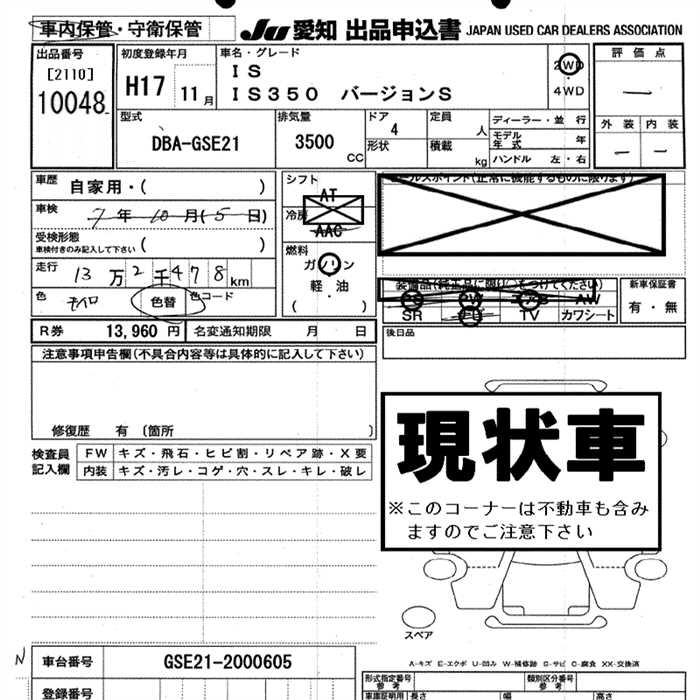 車内保管・守衛保管
JU 愛知 出品申込書 JAPAN USED CAR DEALERS ASSOCIATION
出品番号
[2110]
10048
初度登録年月
H17 11月
車名・グレード
IS
IS350 バージョンS
2WD
4WD
評価点
―
外装 内装
― ―
型式
DBA-GSE21
排気量
3500
CC
ドア
4
形状
定員
人
積載
kg
ディーラー・並行
モデル年式 年
ハンドル 左・右
車歴 自家用・( )
車検 7年10月(5日)
受検形態
車検付きのみ記入して下さい ( )
走行 13万2千478km
色 色替 色コード
シフト
AT
冷房
AAC
燃料
ガソリン
軽・油
( )
セールスポイント(正常に機能するものに限ります)
装備品(純正品に限り○をつけてください)
AW
SR TV カワシート
新車保証書
有・無
後日品
R券 13,960円 名変通知期限 月 日
注意事項申告欄(不具合内容等は具体的に記入して下さい)
修復歴 有 〔箇所 〕
検査員
記入欄
FW キズ・飛石・ヒビ割・リペア跡・X要
内装 キズ・汚レ・コゲ・穴・スレ・キレ・破レ
現状車
※このコーナーは不動車も含み
ますのでご注意下さい
スペア
A-キズ E-エクボ U-凹み W-補修跡 S-サビ C-腐食 XX-交換済
N
車台番号 GSE21-2000605
登録番号
型式指定番号
参考
類別区分番号
参考
車庫証明用
長さ
幅
高さ